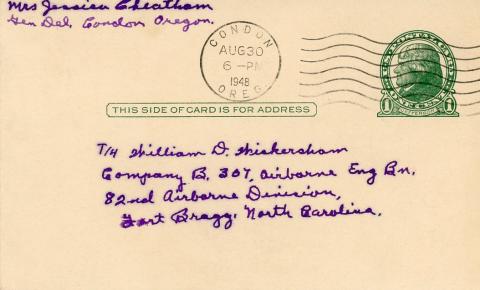 Mrs Jessica Cheatham
Gen Del. Condon Oregon.
CONDON
AUG 30
6 - PM
1948
OREG.
THIS SIDE OF CARD IS FOR ADDRESS
1 1
T/4 William D. Wickersham
Company B, 307, Airborne Eng Bn.
82nd Airborne Division,
Fort Bragg, North Carolina.